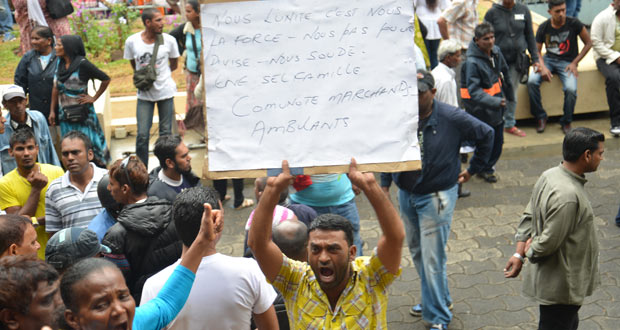 NOUS L'UNITÉ C'EST NOUS
LA FORCE - NOUS PAS POUR
DIVISE - NOUS SOUDÉ -
ENE SEL FAMILLE.
COMUNOTE MARCHANDS
AMBULANTS